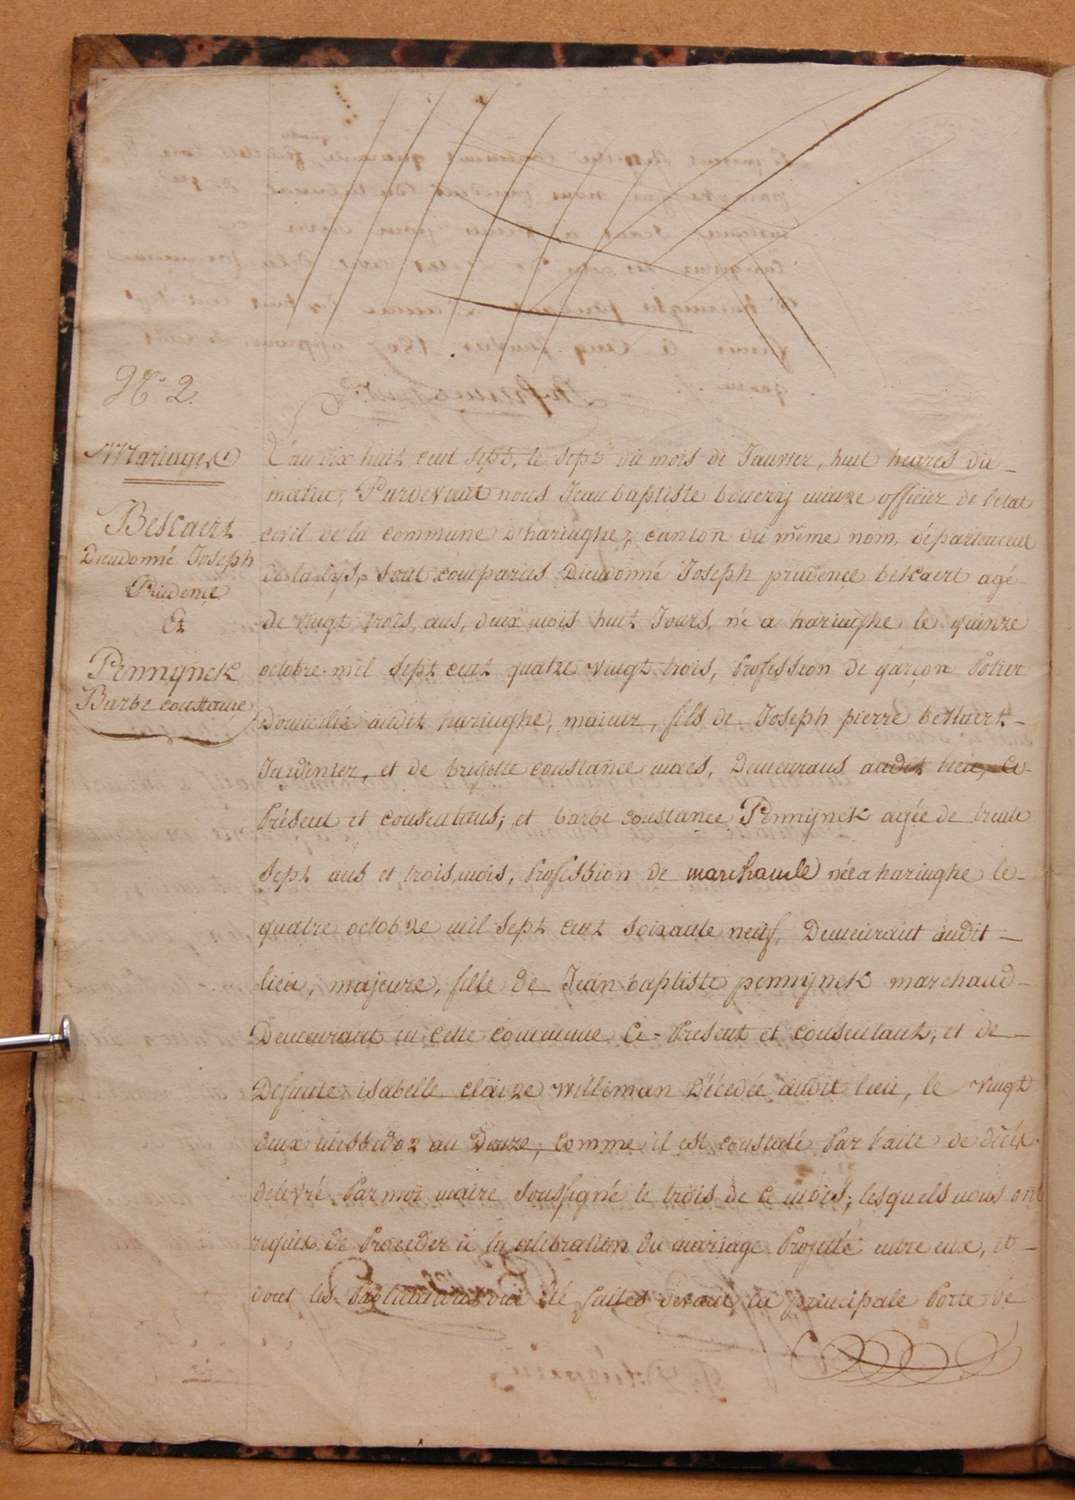 N.o 2.
Mariage
Bescaert
Dieudonné Joseph
Prudence
Et
Pennynck
Barbe Constance
L'an dix huit cent sept, le sept du mois de Janvier, huit heures du
matin, Pardevant nous Jean baptiste bouery maire officier de l'etat
civil de la commune d'haringhe, canton du même nom, département
de la lys, sont comparus Dieudonné Joseph prudence bescaert agé
de vingt trois, ans, deux mois huit Jours, né a haringhe le quinze
octobre mil sept cent quatre vingt trois, Profession de garçon Potier
Domicilié audit haringhe, majeur, fils de Joseph pierre bescaert
Jardinier, et de brigitte constance maes, Demeurans audit lieu, Ci-
Présent et consentans; et barbe constance Pennynck agée de trente
Sept ans et trois mois, Profession de marchande née a haringhe le
quatre octobre mil sept cent soixante neuf, Demeurant audit
lieu, majeure, fille de Jean baptiste pennynck marchand
Demeurant en cette commune Ci-Présent et consentant, et de
Defunte isabelle claire williman Décédée audit lieu, le vingt
deux messidor au Douze, comme il est constaté Par l'acte de décéz
delivré Par moi maire soussigné le trois de ce mois; lesquels nous ont
requis de Proceder à la celebration du mariage Projetté entre eux, et
dont les Publications ont été faites devant la principale Porte de